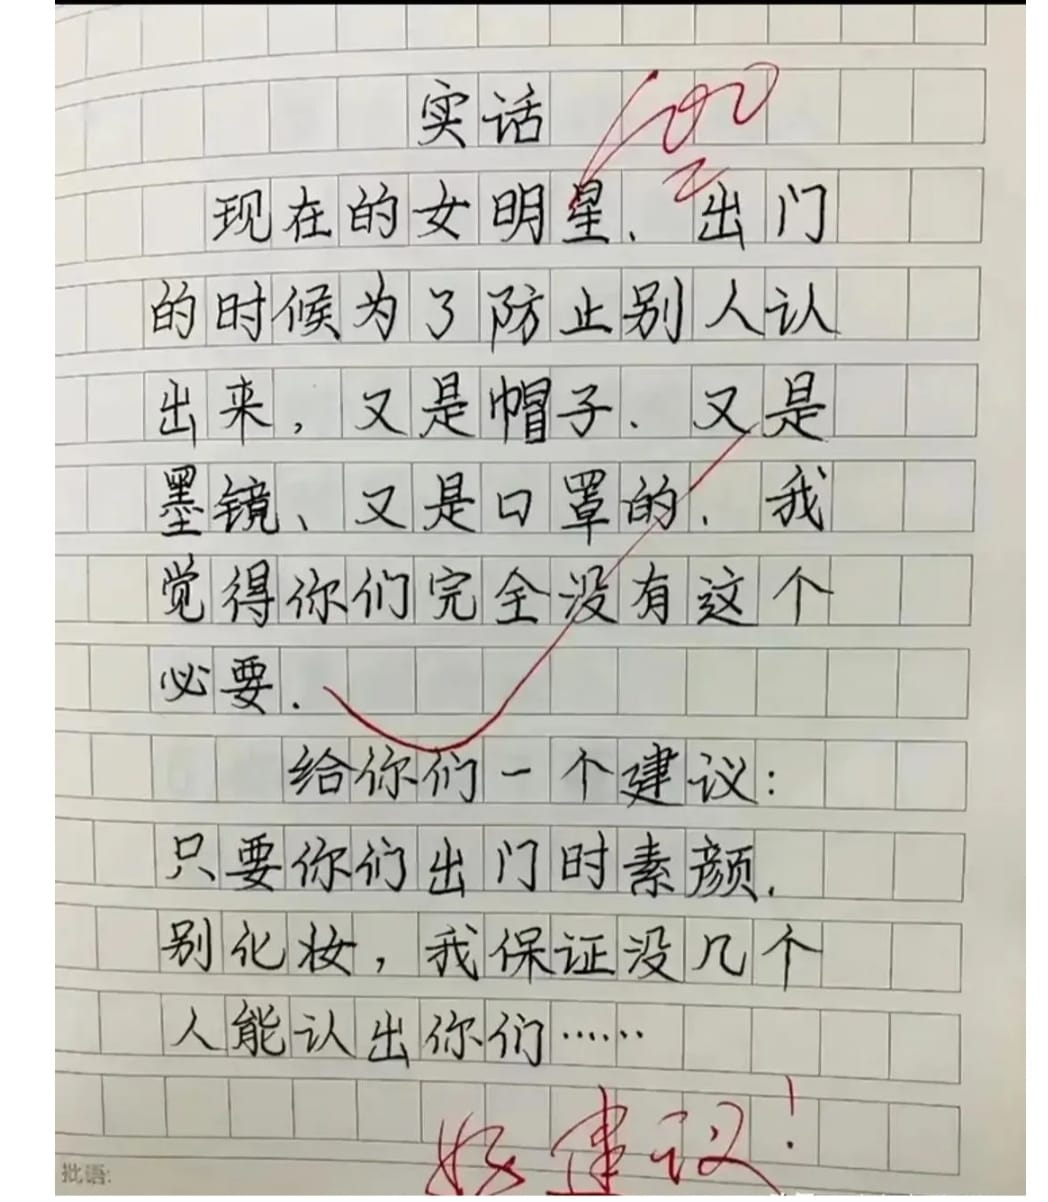 实话
100
现在的女明星、出门
的时候为了防止别人认
出来，又是帽子、又是
墨镜、又是口罩的、我
觉得你们完全没有这个
必要.
给你们一个建议：
只要你们出门时素颜.
别化妆，我保证没几个
人能认出你们……
好建议！
批语: